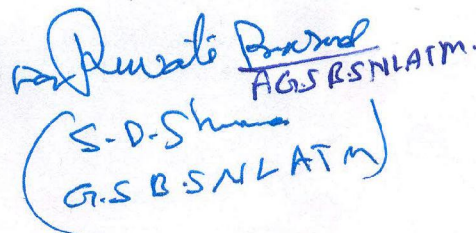 for Rewati Prasad
AGS BSNLATM.
(S-D-Sharma
G.S B.S NL ATM)